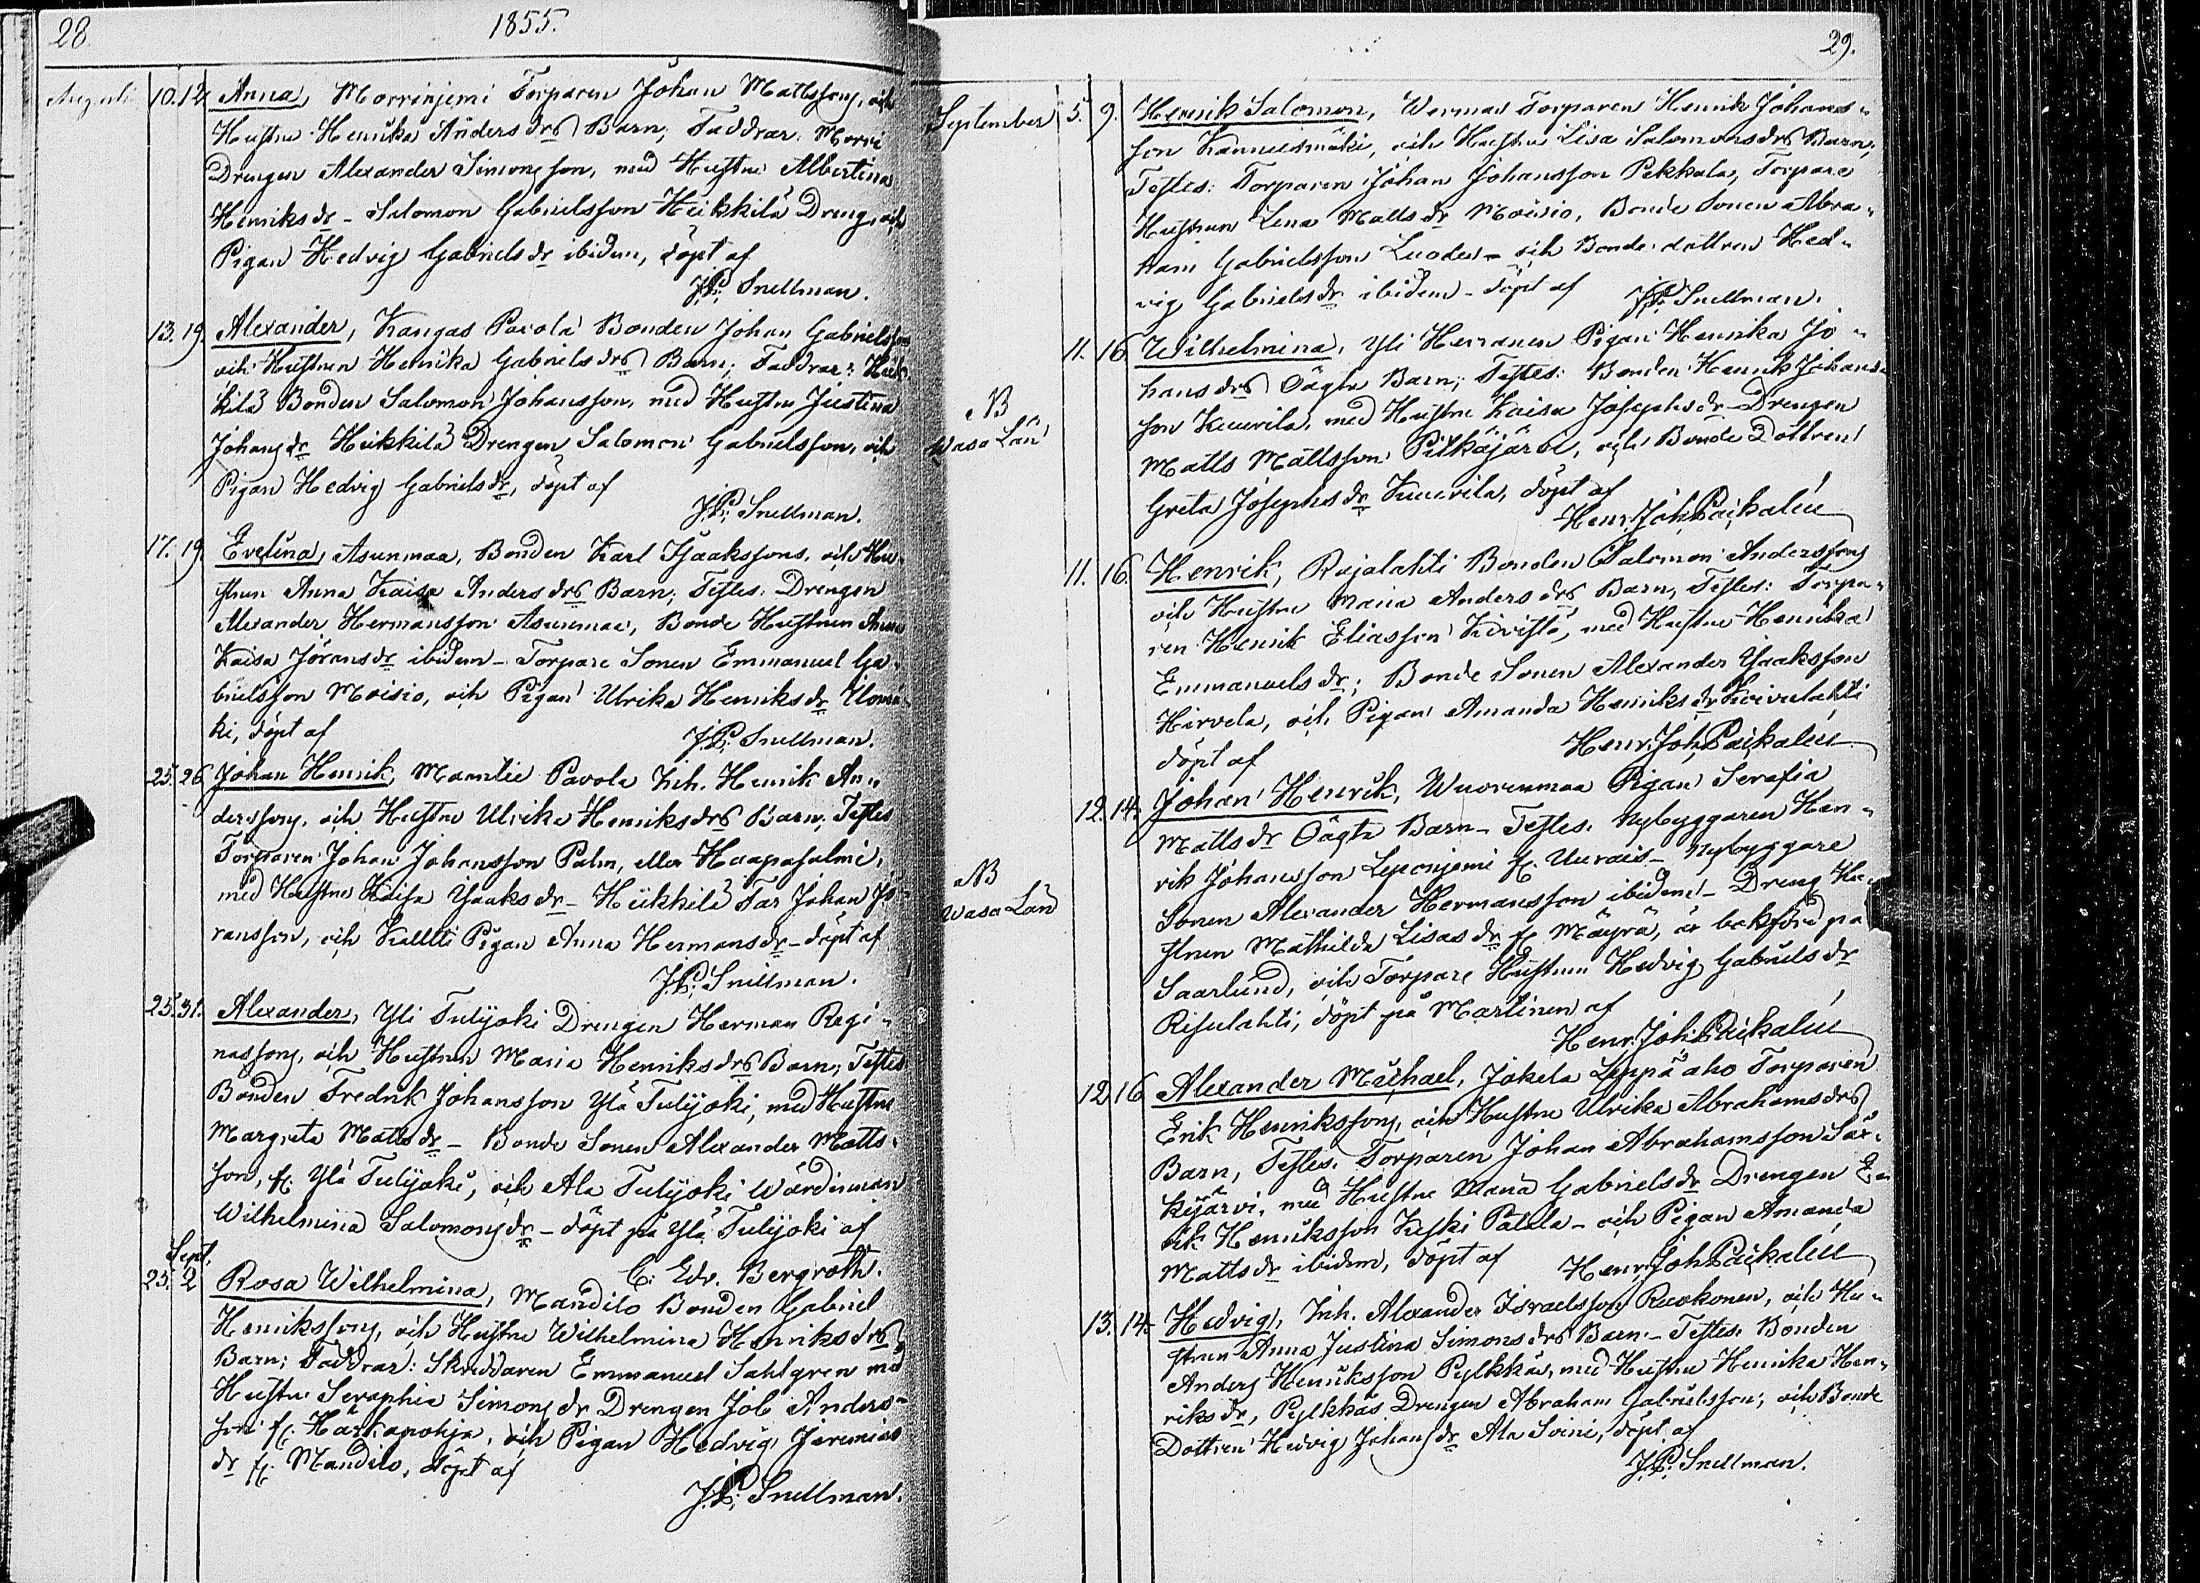 28.
1855.
Augusti
10. 12. Anna, Morrinjemi Torparen Johan Mattssons, och
Hustrus Henrika Anders drs Barn; Faddrar: Morri
Drengen Alexander Simonsson, med Hustru Albertina
Henriksdr - Salomon Gabrielsson Heikkilä Dreng, och
Pigan Hedvig Gabrielsdr ibidem, döpt af
J.P. Snellman.
13. 19. Alexander, Kangas Pavola Bonden Johan Gabrielssons
och Hustrun Henrika Gabriels drs Barn; Faddrar: Heik
kilä Bonden Salomon Johansson, med Hustru Justina
Johansdr Heikkilä Drengen Salomon Gabrielsson, och
Pigan Hedvig Gabrielsdr, döpt af
J.P. Snellman.
17. 19. Evelina, Asunmaa, Bonden Karl Isaakssons, och Hu-
struns Anna Kaisa Anders drs Barn; Testes: Drengen
Alexander Hermansson Asunmaa, Bonde Hustrun Anna
Kaisa Göransdr ibidem - Torpare Sonen Emmanuel Ga-
brielsson Moisio, och Pigan Ulrika Henriksdr Ilomä
ki, döpt af
J.P. Snellman.
25. 26. Johan Henrik, Pavola Inh. Henrik An-
derssons, och Hustru Ulrika Henriksdrs Barn; Testes
Torparen Johan Johansson Palm, eller Haapasalmi,
med Hustru Kaisa Isaaksdr - Heikkilä Far Johan Jö-
ransson, och Pigan Anna Hermansdr - döpt af
J.P. Snellman.
25. 31. Alexander, Yli Tulijoki Drengen Herman Regi-
nassons, och Hustrun Maria Henriksdrs Barn; Testes
Bonden Fredrik Johansson Ylä Tulijoki, med Hustru
Margreta Mattsdr - Bonde Sonen Alexander Matts-
son, fr. Ylä Tulijoki, och Ala Tulijoki Wärdinnan
Wilhelmina Salomonsdr - döpt på Ylä Tulijoki af
C. Edv. Bergroth.
Sept.
25. 2. Rosa Wilhelmina, Mandilo Bonden Gabriel
Henrikssons, och Hustru Wilhelmina Henriksdrs
Barn; Faddrar: Skräddaren Emmanuel Sahlgren med
Hustru Seraphia Simonsdr Drengen Job Anders-
son fr. Härkapohja, och Pigan Hedvig Jeremias
dr fr. Mandilo, döpt af
J.P. Snellman.
29.
September
5. 9. Henrik Salomon, Wermas Torparen Henrik Johans-
son Kannusmäki, och Hustru Lisa Salomonsdrs Barn;
Testes: Torparen Johan Johansson Pekkala, Torpare
Hustrun Lena Mattsdr Moisio, Bonde Sonen Abra-
ham Gabrielsson Luodes - och Bonde dottren Hed-
vig Gabrielsdr ibidem - döpt af
J.P. Snellman.
11. 16. Wilhelmina, Yli Herranen Pigan Henrika Jo-
hansdrs Oägta Barn; Testes: Bonden Henrik Johans-
son Kuurila, med Hustru Kaisa Josephsdr - Drengen
Matts Mattsson Pitkäjärvi, och Bonde Dottren
Greta Josephsdr Kuurila, döpt af
Henr. Joh. Paikalén
NB
Wasa Län
11. 16. Henrik, Rajalahti Bonden Salomon Anderssons
och Hustru Maria Andersdrs Barn, Testes: Torpa-
ren Henrik Eliasson Kivistö, med Hustru Henrika
Emmanuelsdr; Bonde Sonen Alexander Isaaksson
Hirvela, och Pigan Amanda Henriksdr Koivulahti
döpt af
Henr. Joh. Paikalén
12. 14. Johan Henrik, Wuorenmaa Pigan Serafia
Mattsdr Oägta Barn - Testes: Nybyggaren Hen-
rik Johansson Leponjemi fr. Uurais - Nybyggare
Sonen Alexander Hermansson ibidem - Dreng Hu-
strun Mathilda Lisasdr fr. Mäyrä, är bokförd på
Saarlund, och Torpare Hustrun Hedvig Gabrielsdr
Risulahti, döpt på Martinen af
Henr. Joh. Paikalén
NB
Wasa Län
12. 16. Alexander Michael, Jokela Leppä aho Torparen
Erik Henrikssons, och Hustru Ulrika Abrahamsdrs
Barn, Testes: Torparen Johan Abrahamsson Sär-
kijärvi, med Hustru Maria Gabrielsdr Drengen E-
rik Henriksson Keski Patala - och Pigan Amanda
Mattsdr ibidem, döpt af
Henr. Joh. Paikalén
13. 14. Hedvig, Inh. Alexander Israelssons Ruokonen, och Hu-
strun Anna Justina Simonsdrs Barn - Testes: Bonden
Anders Henriksson Pylkkäs, med Hustru Henrika Hen-
riksdr, Pylkkäs Drengen Abraham Gabrielsson, och Bonde
Dottren Hedvig Johansdr Ala Soini, döpt af
J.P. Snellman.